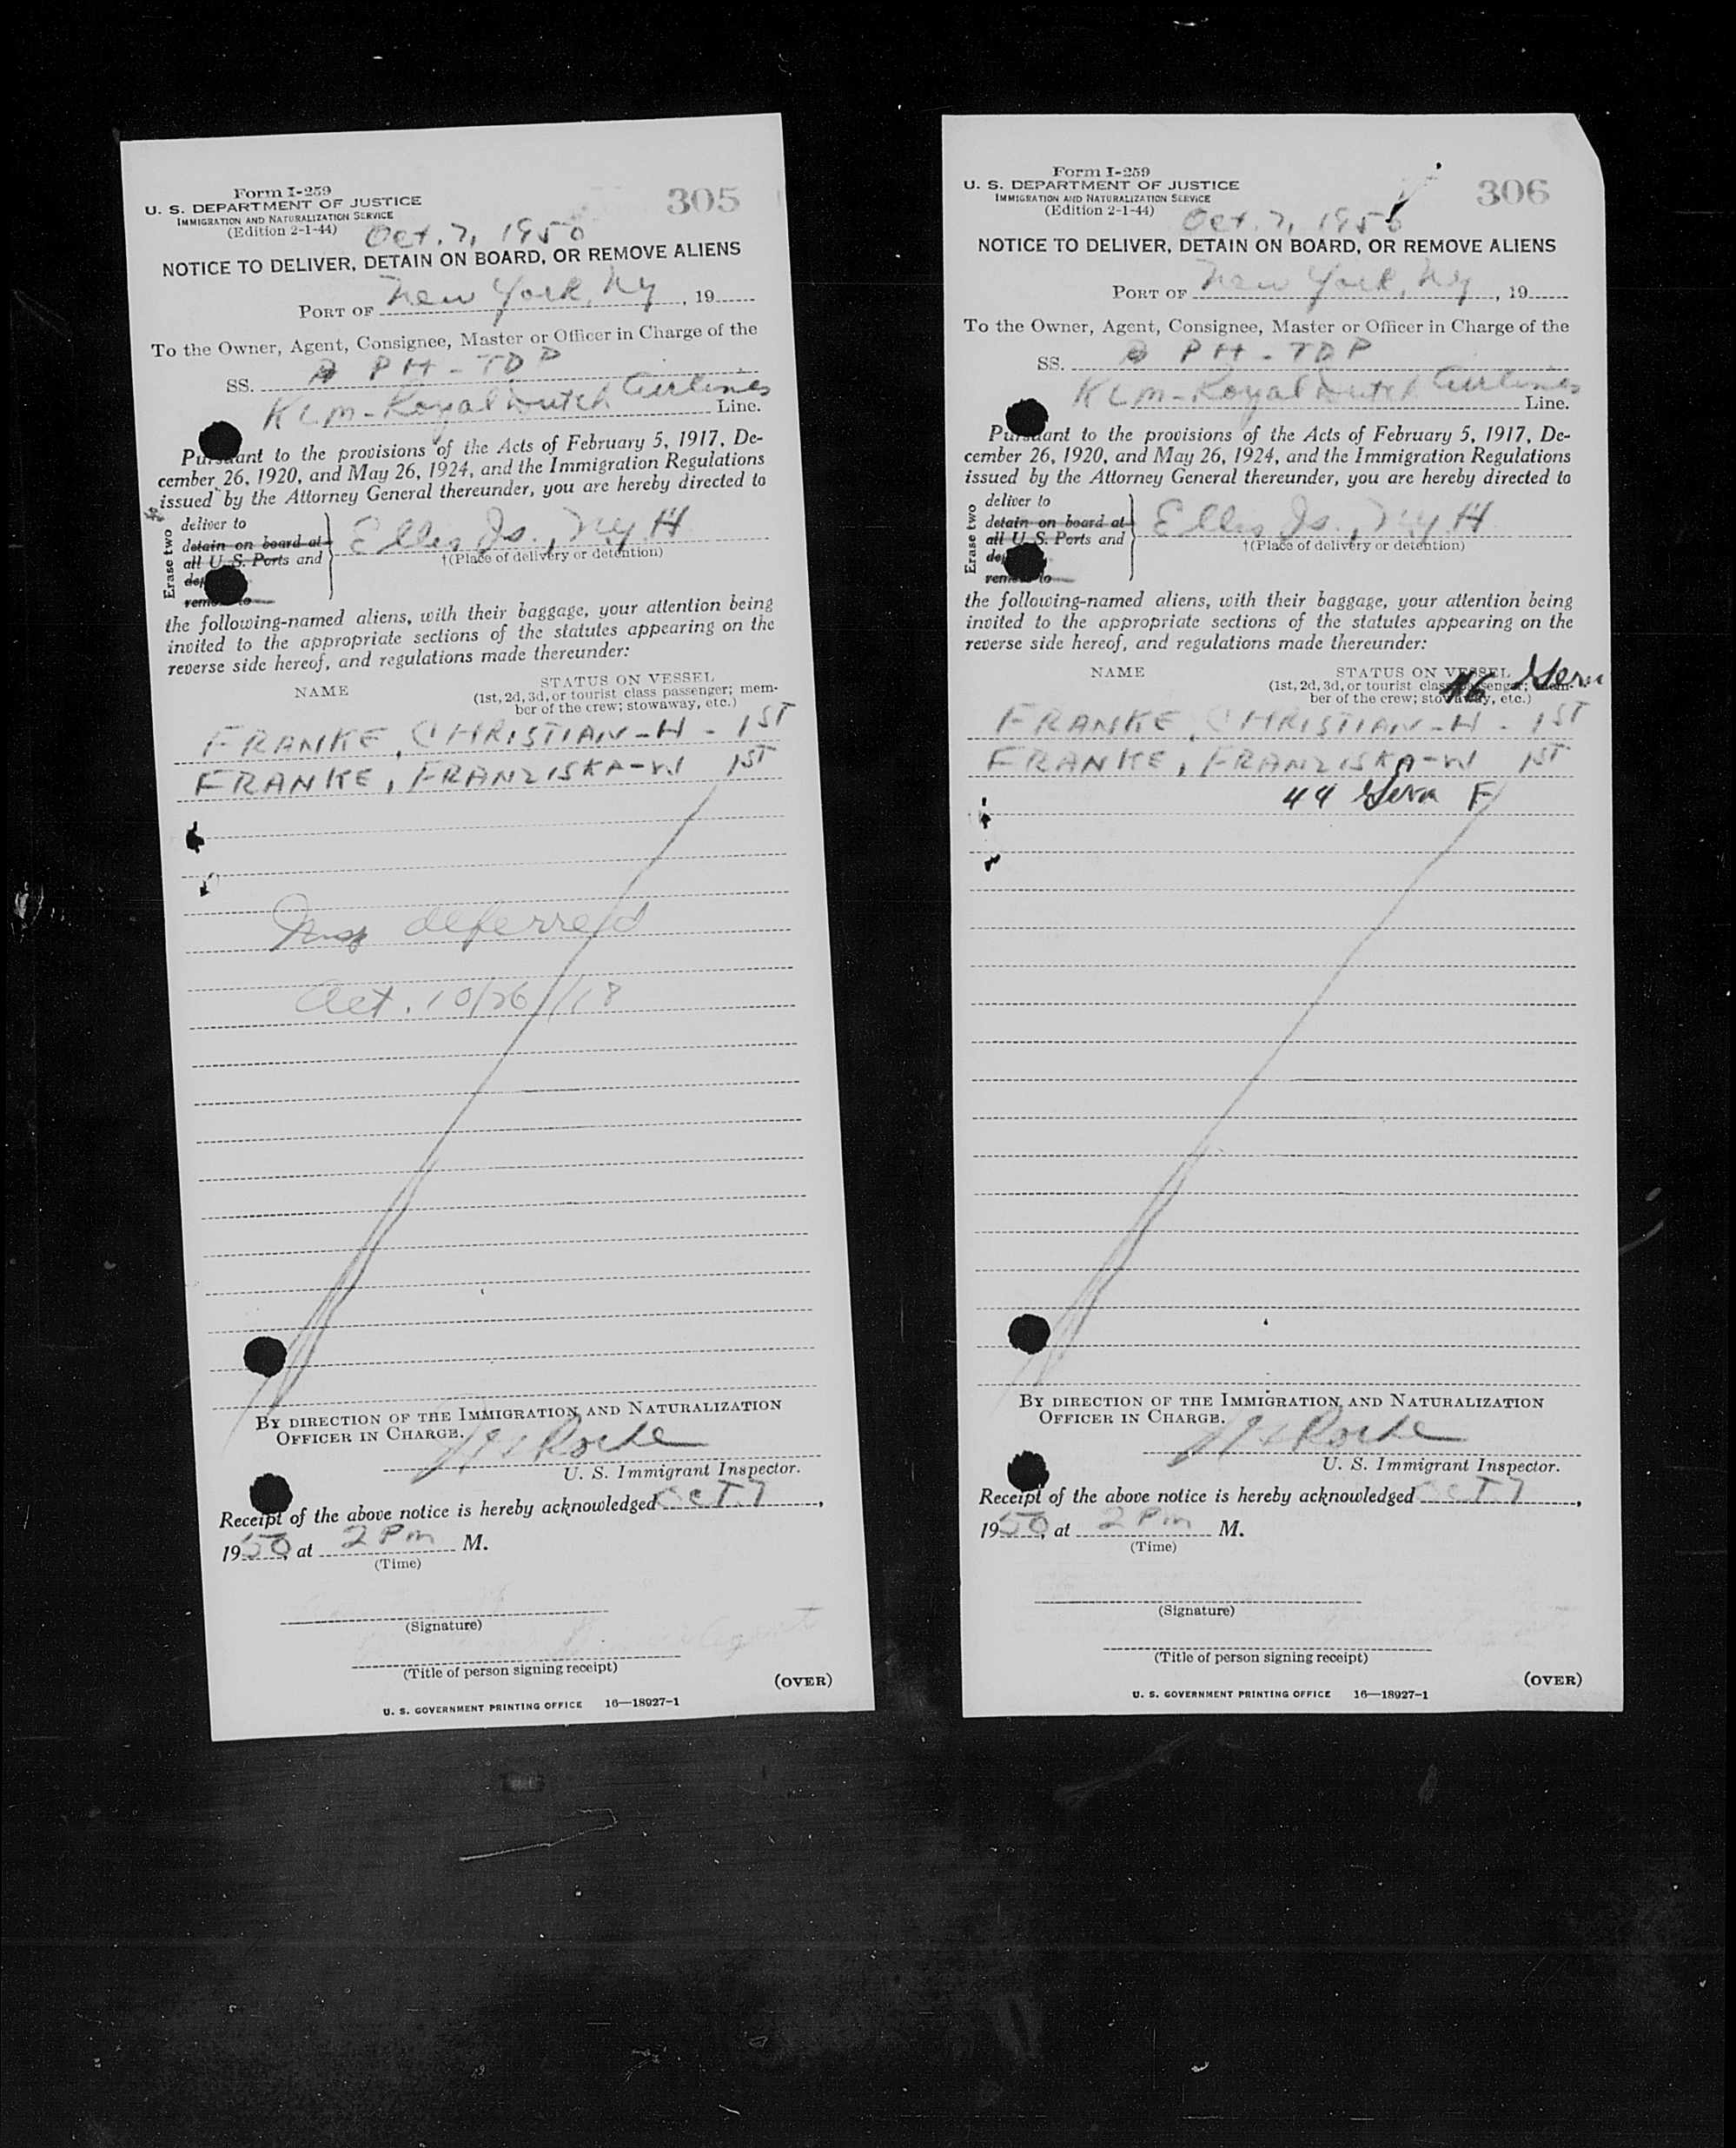 Form I-259
U. S. DEPARTMENT OF JUSTICE
IMMIGRATION AND NATURALIZATION SERVICE
(Edition 2-1-44)
305
Oct. 7, 1950
NOTICE TO DELIVER, DETAIN ON BOARD, OR REMOVE ALIENS
PORT OF New York, NY, 19
To the Owner, Agent, Consignee, Master or Officer in Charge of the
SS. PH-TDP
KLM-Royal Dutch Airlines Line.
Pursuant to the provisions of the Acts of February 5, 1917, De-
cember 26, 1920, and May 26, 1924, and the Immigration Regulations
issued by the Attorney General thereunder, you are hereby directed to
Erase two
deliver to
detain on board at
all U. S. Ports and
remove to
Ellis Is., NY H
†(Place of delivery or detention)
the following-named aliens, with their baggage, your attention being
invited to the appropriate sections of the statutes appearing on the
reverse side hereof, and regulations made thereunder:
NAME
STATUS ON VESSEL
(1st, 2d, 3d, or tourist class passenger; mem-
ber of the crew; stowaway, etc.)
FRANKE, CHRISTIAN-H - 1ST
FRANKE, FRANZISKA-W 1ST
deferred
Act. 10/26/18
BY DIRECTION OF THE IMMIGRATION AND NATURALIZATION
OFFICER IN CHARGE.
Roche
U. S. Immigrant Inspector.
Receipt of the above notice is hereby acknowledged OCT. 7,
1950, at 2 Pm M.
(Time)
(Signature)
Agent
(Title of person signing receipt)
(OVER)
U. S. GOVERNMENT PRINTING OFFICE 16—18927-1
Form I-259
U. S. DEPARTMENT OF JUSTICE
IMMIGRATION AND NATURALIZATION SERVICE
(Edition 2-1-44)
306
Oct. 7, 1950
NOTICE TO DELIVER, DETAIN ON BOARD, OR REMOVE ALIENS
PORT OF New York, NY, 19
To the Owner, Agent, Consignee, Master or Officer in Charge of the
SS. PH-TDP
KLM-Royal Dutch Airlines Line.
Pursuant to the provisions of the Acts of February 5, 1917, De-
cember 26, 1920, and May 26, 1924, and the Immigration Regulations
issued by the Attorney General thereunder, you are hereby directed to
Erase two
deliver to
detain on board at
all U. S. Ports and
remove to
Ellis Is., NY H
†(Place of delivery or detention)
the following-named aliens, with their baggage, your attention being
invited to the appropriate sections of the statutes appearing on the
reverse side hereof, and regulations made thereunder:
NAME
STATUS ON VESSEL
(1st, 2d, 3d, or tourist class passenger; mem-
ber of the crew; stowaway, etc.)
46 Germ
FRANKE, CHRISTIAN-H - 1ST
FRANKE, FRANZISKA-W 1ST
44 Germ F
BY DIRECTION OF THE IMMIGRATION AND NATURALIZATION
OFFICER IN CHARGE.
Roche
U. S. Immigrant Inspector.
Receipt of the above notice is hereby acknowledged OCT. 7,
1950, at 2 Pm M.
(Time)
(Signature)
(Title of person signing receipt)
(OVER)
U. S. GOVERNMENT PRINTING OFFICE 16—18927-1